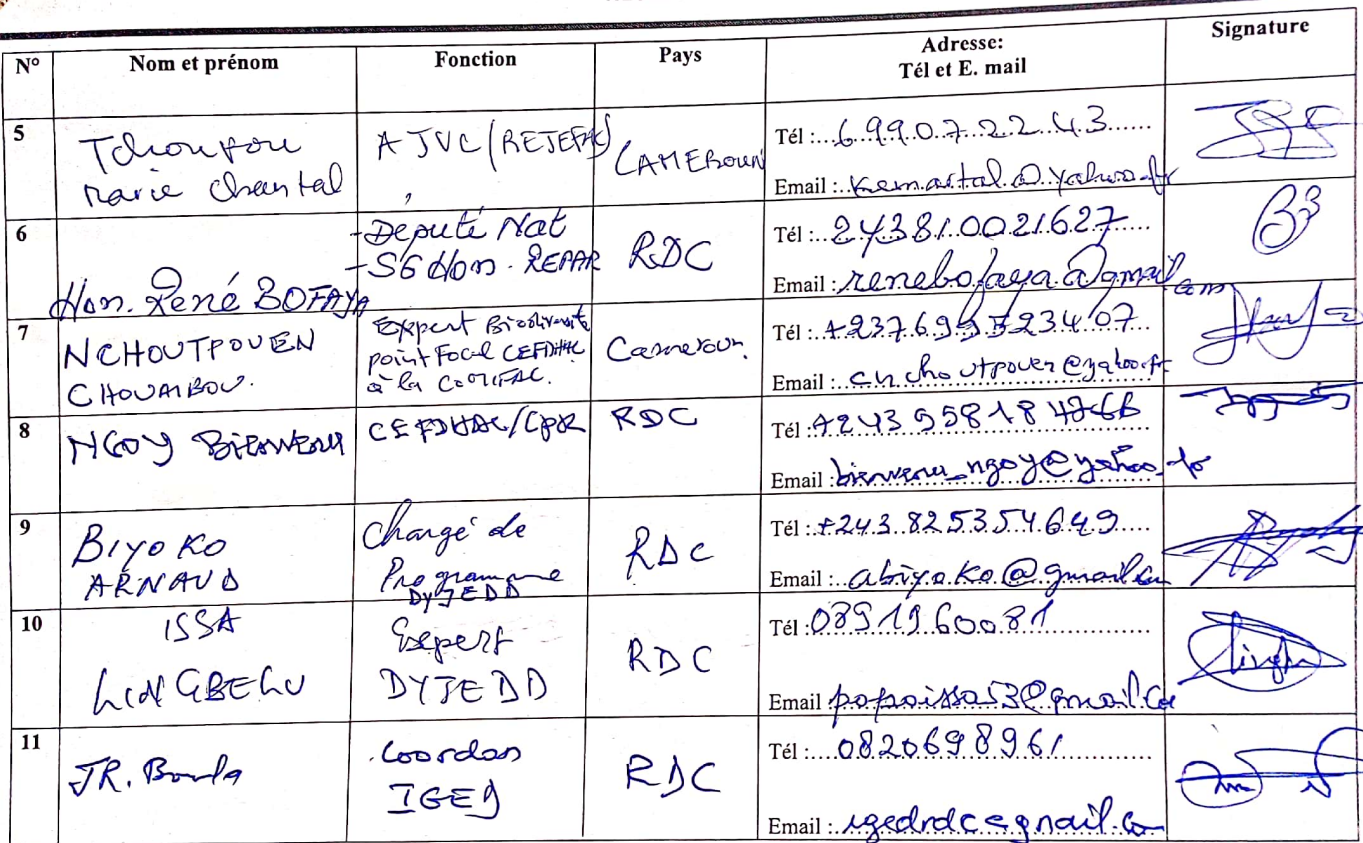 N° Nom et prénom Fonction Pays Adresse: Tél et E. mail Signature
5 Tchoupou Marie Chantal AJVC (REJEFAC) CAMEROUN
Tél : 699072243
Email : kemartal@yahoo.fr
6 Hon. René BOFAYA
-Deputé Nat
-SG Hon. REPAR
RDC
Tél : 243810021627
Email : renebofaya@gmail.com
7 NCHOUTPOUEN
CHOUAIBOU.
Expert Biodiversité
point Focal CEFDHAC
à la COMIFAC.
Cameroun.
Tél : +237.699523407
Email : cnchoutpouen@yahoo.fr
8 NGOY BIENVENU CEFDHAC/CPR RDC
Tél :
Email : bienvenu_ngoy@yahoo.fr
9 BIYOKO
ARNAUD
Chargé de
Programme
DYJEDD
RDC
Tél : +243.825354649
Email : abiyoko@gmail.com
10 ISSA
LINGBELU
Expert
DYJEDD
RDC
Tél : 0891960081
Email : popoissa53@gmail.co
11 JR. Bonla
Coordon
IGED
RDC
Tél : 0820698961
Email : igedrdc@gmail.com